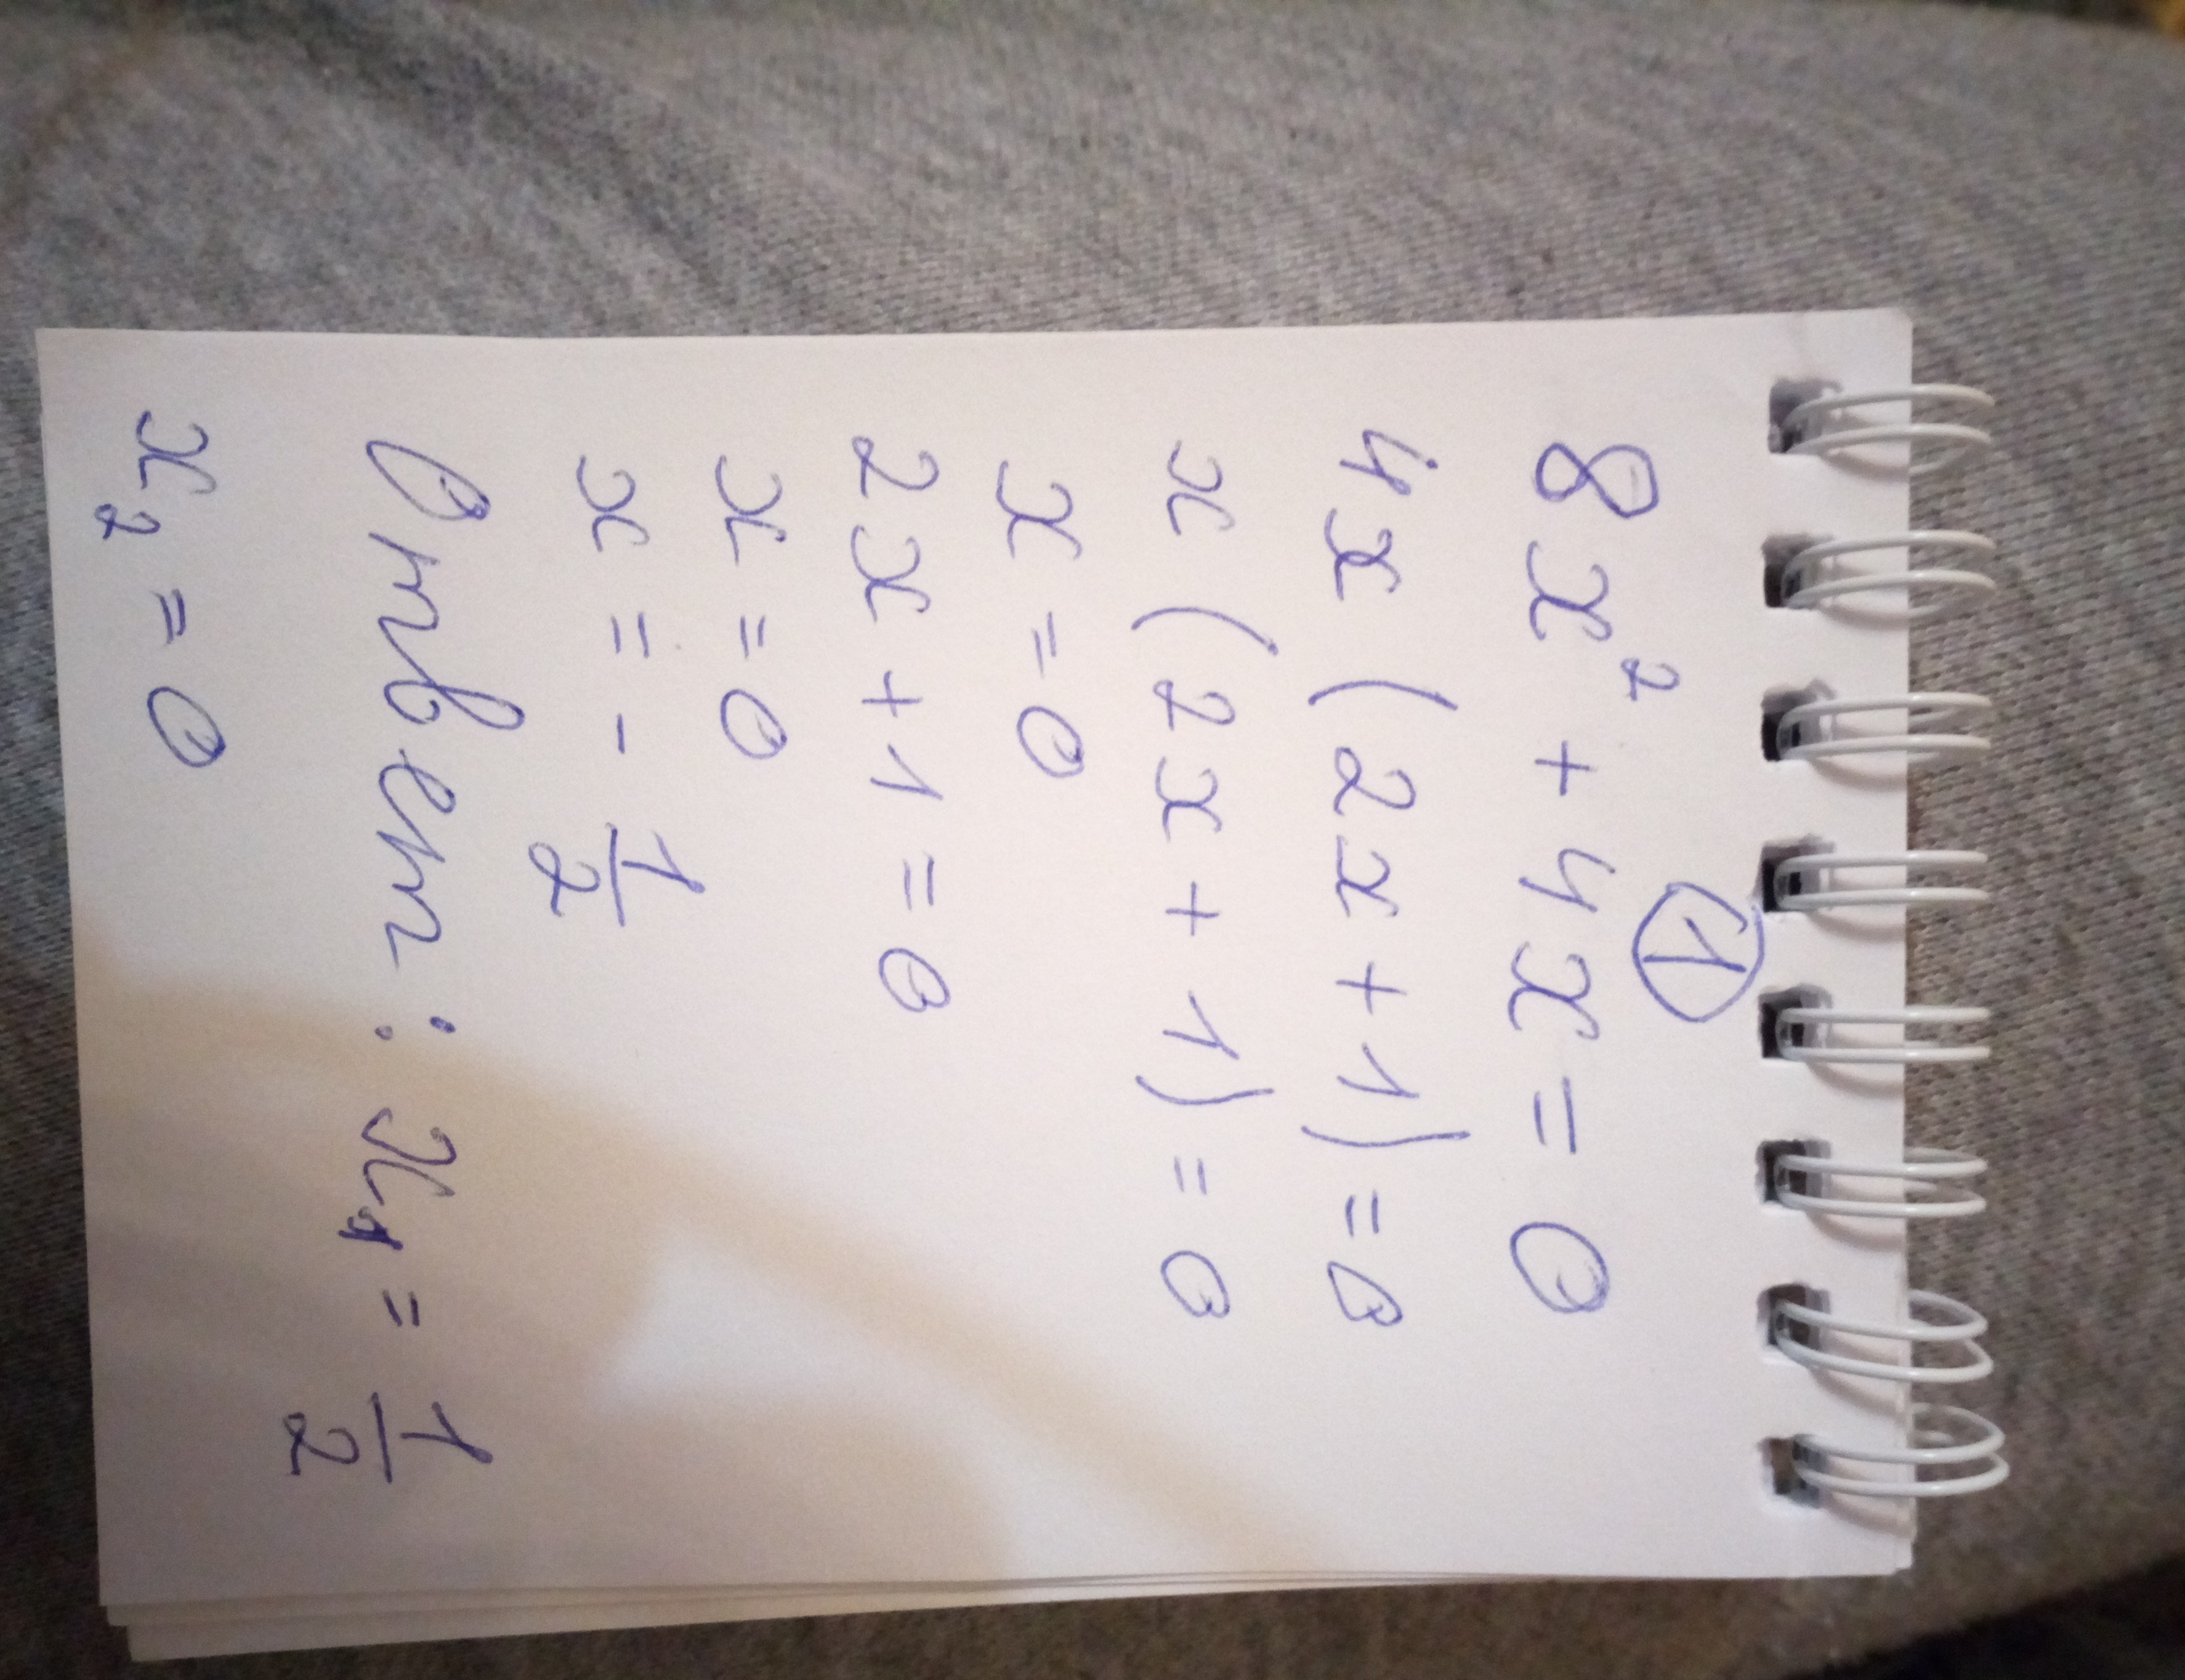 ①
8x² + 4x = 0
4x (2x + 1) = 0
x (2x + 1) = 0
x = 0
2x + 1 = 0
x = 0
x = - 1/2
Ответ: x₁ = 1/2
x₂ = 0